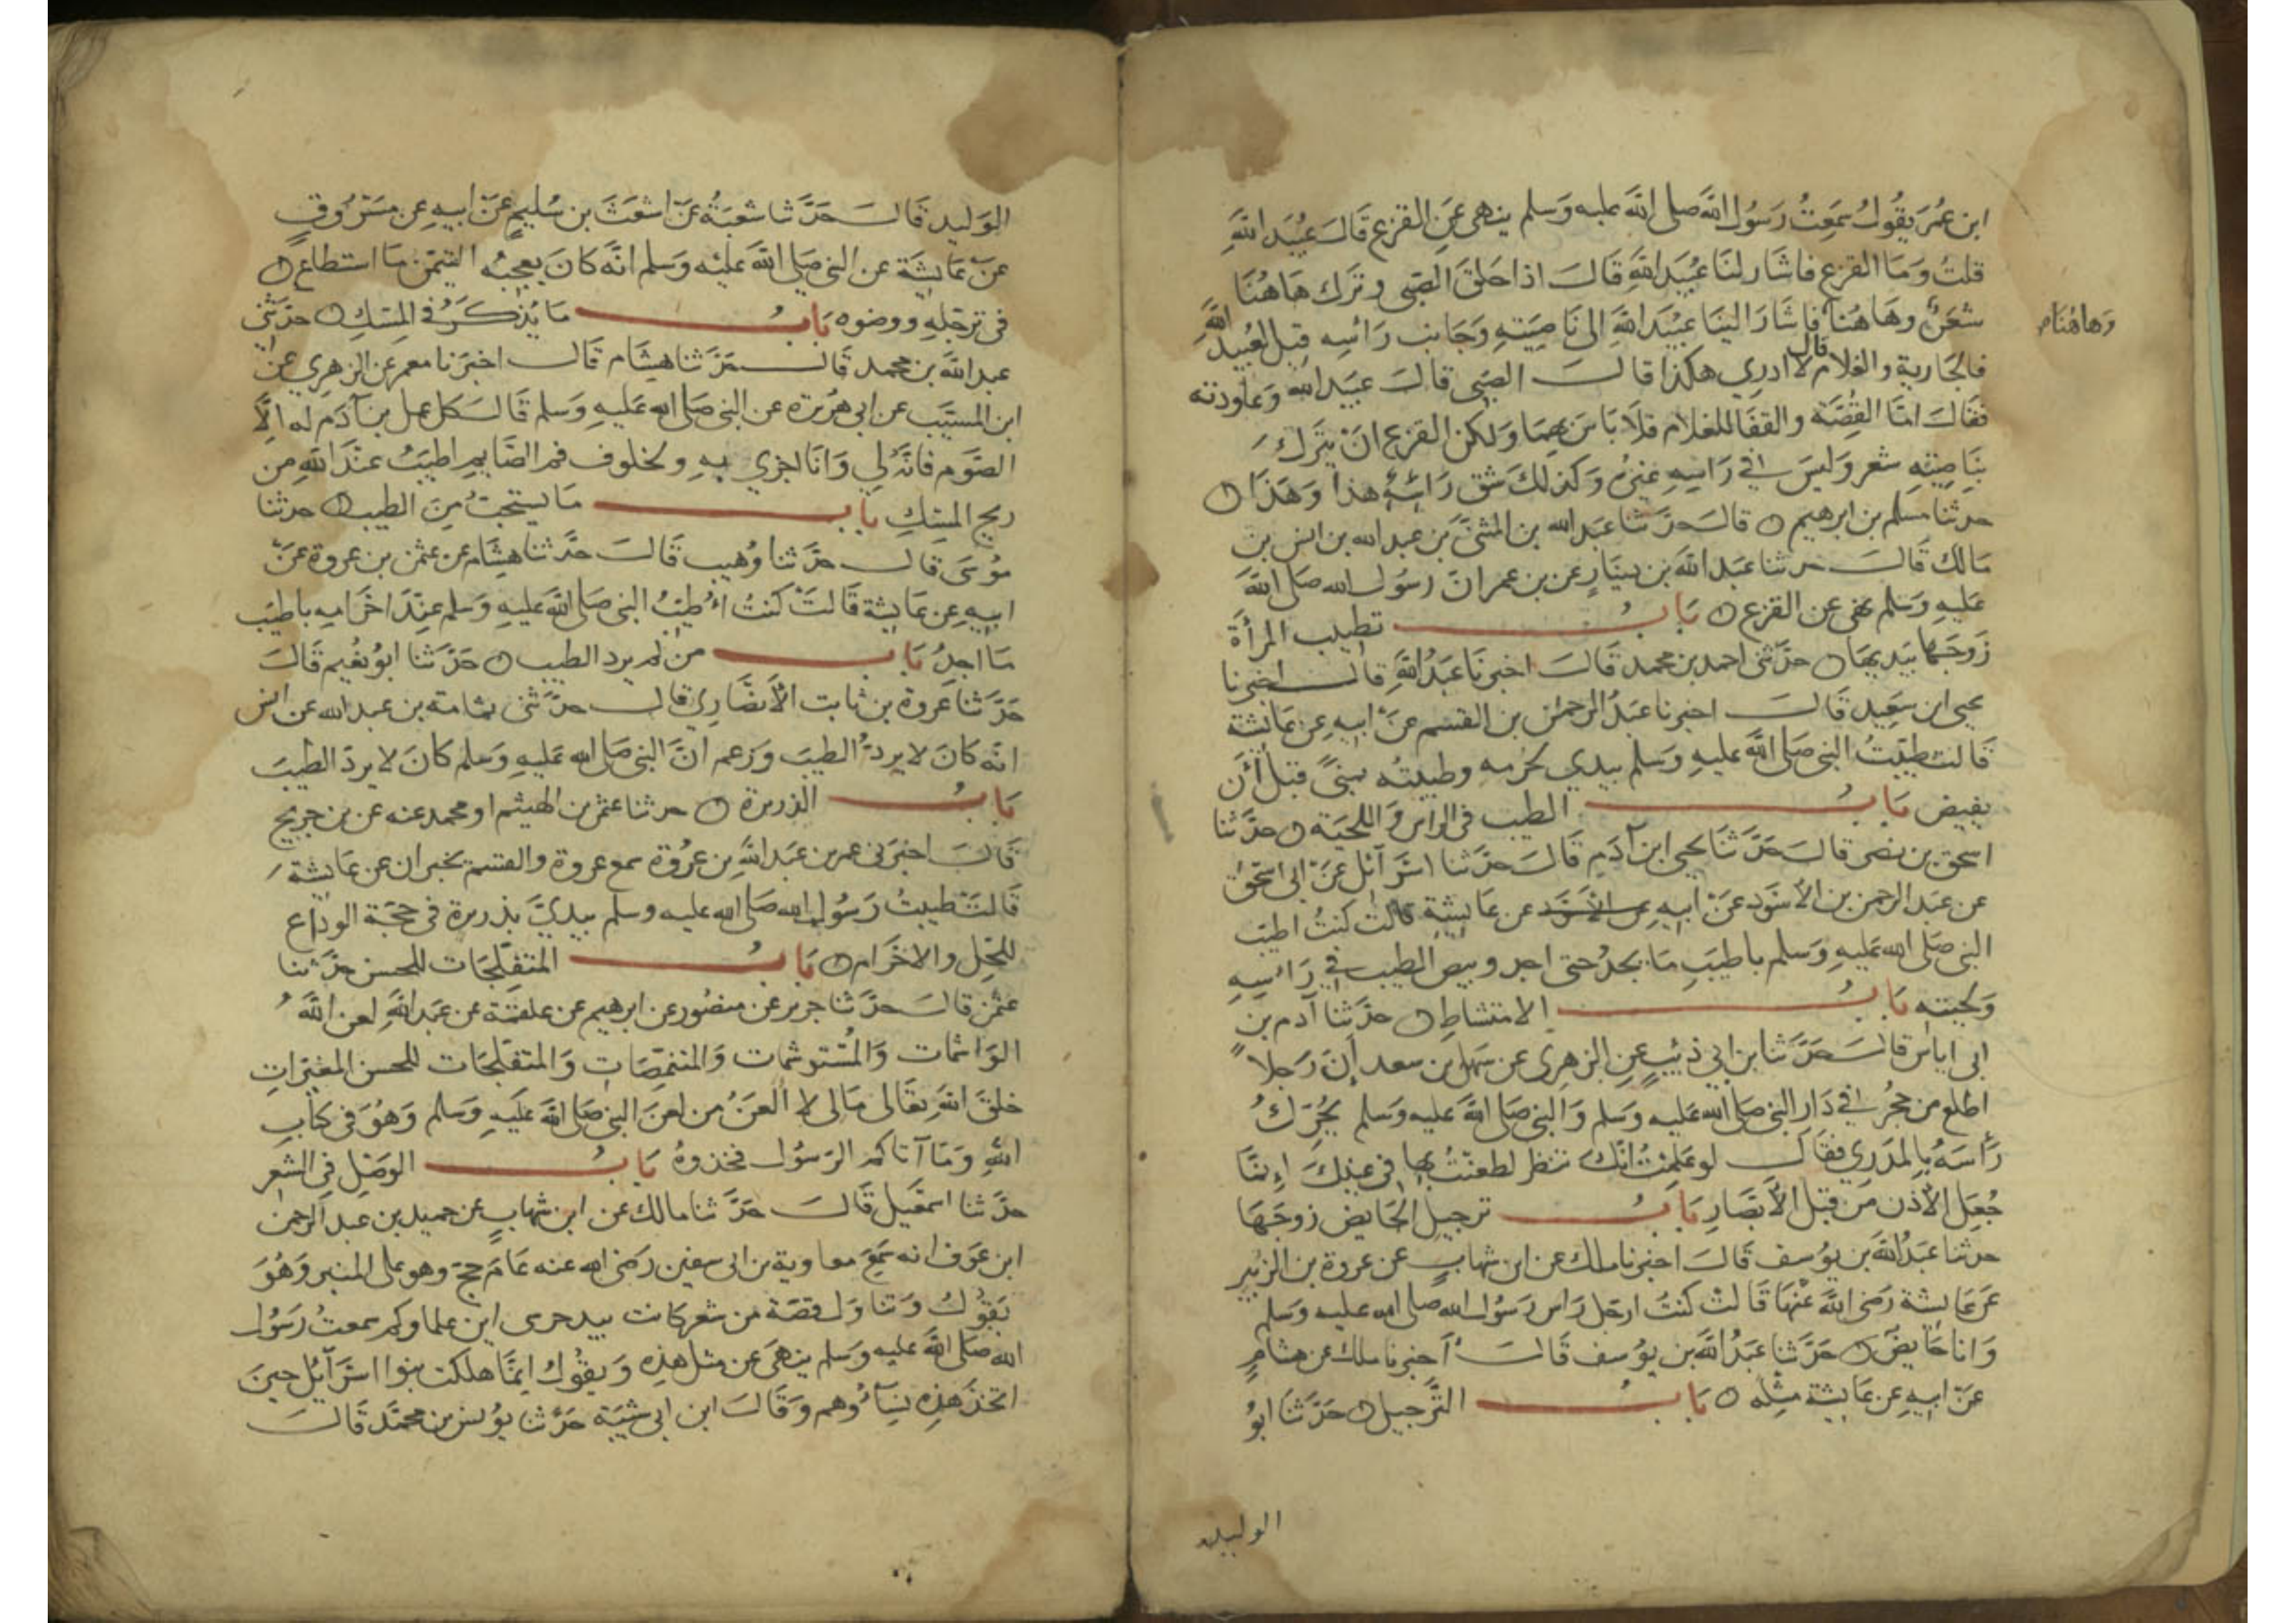 ابن عُمَر يَقُولُ سَمِعتُ رَسُول اللَّه صلى اللَّه عليه وَسلم ينهى عَنِ القزع قَالَ عُبَيد اللَّهِ
قلتُ وَمَا القزع فاشَار لنَا عُبَيد اللَّهِ قَالَ اذا حَلقَ الصّبى وترك هَاهُنَا
شعَرٌ وهَاهُنا فاشَارَ الينَا عبَيْد اللَّه الى نَاصِيَتِهِ وَجَانب رَاسِه قيل لعُبيد اللَّه
وَهاهُنا
فالجَارية والغلام قال لا ادرِي هكذا قالَ الصّبى قالَ عبَيد اللَّه وَعاودته
فقالَ امّا القُصّة والقفا للغلام فلا بَاسَ بهمَا وَلكن القزع انْ يترَك
بنَاصيتِهِ شعر وَليسَ فى رَاسِهِ غيرُه وَكذلك شق رَاسِه هذا وَهَذا
حدثنا مسلم بن ابرهيم قالَ حدّثنا عَبد الله بن المثنَّى بن عبد الله بن انس بن
مَالك قَالَ حدثنا عبَد اللَّه بن دينَارٍ عن بن عمر انّ رسُول الله صَلى اللَّه
عَليهِ وَسَلم نهى عن القزع بَابُ تطييب المرأة
زوجَهَا بيَديهَا حدّثنى احمد بن محمد قَالَ اخبرنَا عَبدُ اللَّهِ قالَ اخبرنا
يحيى ابن سَعِيد قَالَ اخبرنا عَبدُ الرحمن بن القسم عنْ ابيهِ عن عَائشة
قَالت طيّبتُ النبى صَلى اللَّه عليهِ وَسَلم بيدي لحرمه وطيبته بمنًى قبل أن
يفيض بَابُ الطيب فى الراس وَاللحيَة حدَّثنا
اسحق بن نصر قالَ حَدَّثنَا يحيى ابن آدَم قَالَ حدَّثنا اسرَآئل عَنْ ابى اسحق
عن عَبد الرحمن بن الأسوَد عَنْ ابيهِ عن الأسوَد عن عَائِشة قالت كنتُ اطيب
النبى صَلى الله عَليهِ وَسَلم باطيَبِ مَا يجدُ حتى اجد وبيص الطيب فى رَاسِهِ
وَلحيته بَابُ الامتشاطِ حدَّثنا آدم بن
ابى اياسٍ قالَ حَدَّثنا بن ابى ذئبٍ عَنِ الزهرِى عن سَهل بن سعد اَنّ رَجلاً
اطلع من جحْر فى دَار النبى صَلى الله عَليه وَسلم وَالنبى صَلى اللَّه عَليه وسَلم يحُرّكُ
رَأسَهُ بِالمدرِي فقالَ لو عَلمتُ انّك تنظر لطعَنتُ بها فى عينِكَ إنمَّا
جُعِلَ الأذن من قبَل الأبصَارِ بَابُ ترجيلِ الحَايض زوجَهَا
حدثنا عَبَدُ اللَّه بن يوُسف قَالَ اخبرنا ملك عن ابن شهابٍ عن عروة بن الزبير
عَن عَايشة رَضى اللَّهَ عَنْهَا قَالتْ كنتُ ارجل رَاس رَسُول الله صلى الله عليه وسَلم
وَانا حَايضٌ حَدَّثنا عَبَدُ اللَّه بن يوُسف قَالَ أخبرنا ملك عن هشَامٍ
عَن ابيهِ عن عَايشة مثِله بَابُ التَّرجيل حَدَّثنَا ابوُ
الوليد
الوَليد قَالَ حَدَّثنا شعبَةُ عَن اشعَثَ بن سُليمٍ عَنْ ابيهِ عن مسَرُوقٍ
عَنْ عَايشَة عن النبى صَلى اللَّهَ عَليْه وَسَلم انّهُ كانَ يعجِبُه التيمّن مَا استطاع
فى ترَجّلهِ ووضوه بَابُ مَا يُذكَرُ فى المِسْكِ حدّثنى
عبد اللَّه بن محمد قَالَ حَدَّثنا هِشَام قَالَ اخبَرَنا معمر عن الزهرِي عنْ
ابن المسيّبَ عن ابى هُريرة عن النبى صَلى الله عَليهِ وَسَلم قَالَ كل عمل بن آدَم له الَّا
الصَّوم فانَّهُ لي وَانَا اجزي بهِ ولخلوف فم الصَّايم اطيَبُ عنْدَ اللَّهِ من
ريح المسْكِ بَابُ مَا يستحبُ مِنَ الطيب حدثنا
موُسَى قالَ حدَّثنا وُهيب قَالَ حدَّثنا هِشَام عن عثمن بن عروة عَنْ
ابيهِ عن عَايشة قَالتْ كنتُ اُطيّبُ النبى صَلى اللَّه عَليهِ وَسَلم عِنْدَ احْرَامِهِ باطيَب
مَا اجِدُ بَابُ من لم يرد الطيب حَدَّثنا ابوُ نعُيم قَالَ
حَدَّثنا عَزرة بن ثابت الأنصَاري قالَ حدَّثنى ثمامة بن عبد الله عن انس
انّه كانَ لا يردُّ الطيبَ وَزعم انَّ النبى صَلى الله عَليهِ وَسَلم كانَ لا يردّ الطيبَ
بَابُ الذريرة حدثنا عثمن بن الهيثم او محمد عنه عن بن جريج
قَالَ اخبَرَنى عمر بن عَبد اللَّهِ بن عرُوَة سمع عروة والقسم يخبران عن عَايشة
قَالتْ طيبتُ رَسُول الله صَلى الله عليه وسلم بيديَّ بذريرة فى حجّة الودَاع
للحِلّ والاحْرَام بَابُ المتفلّجَات للحسن حدَّثنا
عثمن قالَ حدَّثنا جرير عن منصُور عن ابرهيم عن علقَمَة عن عَبد اللَّهِ لعن اللَّهُ
الوَاشمات وَالمُسْتوشمات وَالمتنمّصَاتِ وَالمتفلّجَات للحسن المغيّرَاتِ
خلقَ اللَّهِ تعَالى مَالى لا العَنُ من لعَنَ النبى صَلى اللَّه عَليَهِ وَسَلم وَهُوَ فى كتابِ
اللَّهِ وَمَا آتاكم الرَسُول فخذوهُ بَابُ الوَصَلِ فى الشعَر
حدَّثنا اسمعَيل قَالَ حَدَّثنا مالك عن ابن شهابٍ عن حميد بن عبد الرحمن
ابن عَوف انه سَمِعَ معاوية بن ابى سفين رَضى الله عنه عَامَ حجّ وهو على المنبر وَهُوَ
يَقوُلُ وَتناوَل قصّة من شعَر كانت بيد حرسى اين علماوكم سمعتُ رَسُول
الله صَلى اللَّهَ عليه وَسلم ينهَى عَن مثل هذِهِ وَيقوُل انمَّا هلكت بنوا اسرَآئل حينَ
اتخذَ هذِهِ نِسَآؤهم وَقَالَ ابن ابى شيبَة حَدَّثنا يوُنس بن محمَّد قَالَ